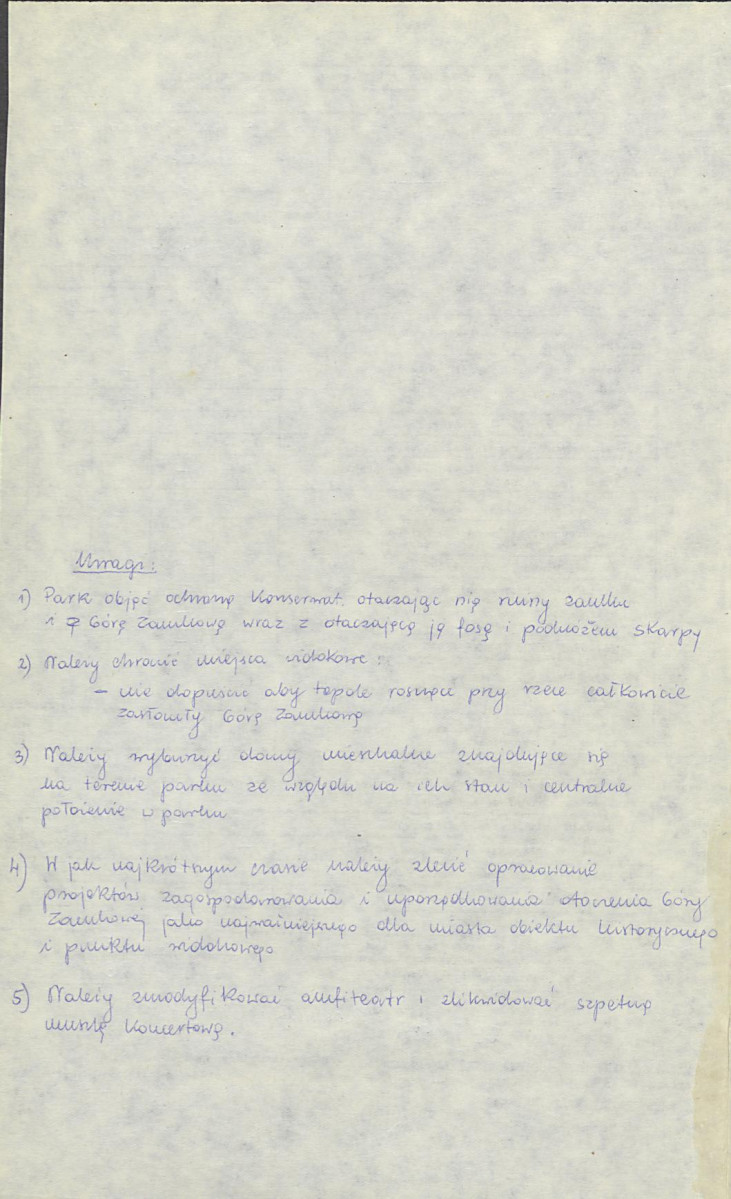 Uwagi:
1) Park objąć ochroną Konserwat. otaczając nią ruiny zamku
i Górę Zamkową wraz z otaczającą ją fosą i podnóżem skarpy
2) Należy chronić miejsca widokowe:
– nie dopuścić aby topole rosnące przy rzece całkowicie
zasłoniły Górę Zamkową
3) Należy wyburzyć domy mieszkalne znajdujące się
na terenie parku ze względu na ich stan i centralne
położenie w parku
4) W jak najkrótszym czasie należy zlecić opracowanie
projektów zagospodarowania i uporządkowania otoczenia Góry
Zamkowej jako najważniejszego dla miasta obiektu historycznego
i punktu widokowego
5) Należy zmodyfikować amfiteatr i zlikwidować szpetną
muszlę koncertową.